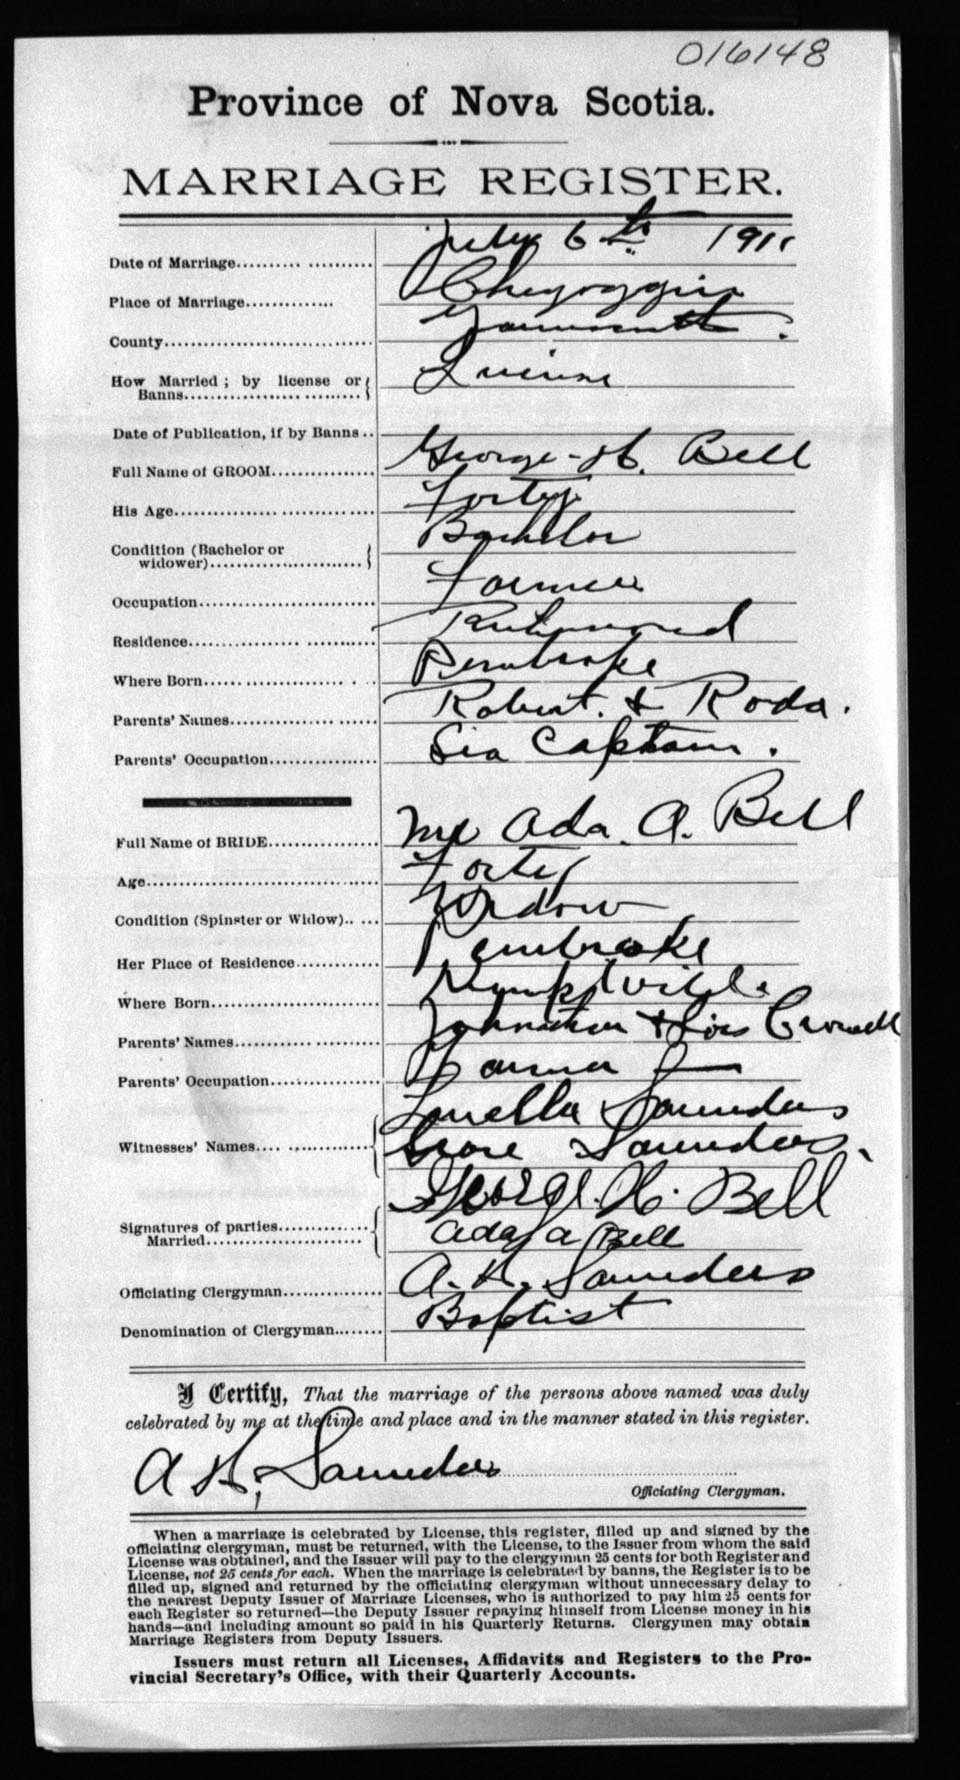 016148
Province of Nova Scotia.
MARRIAGE REGISTER.
Date of Marriage.......... ........... July 6th 1911
Place of Marriage............. Chegoggin
County............................... Yarmouth.
How Married; by license or License
Banns.................... ...........
Date of Publication, if by Banns..
Full Name of GROOM............... George H. Bell
His Age.................. ............. Forty
Condition (Bachelor or Bachelor
widower)............................
Occupation........................... Farmer
Residence................ ........... Richmond
Where Born...... ................ . . Pembroke
Parents' Names.................. ...... Robert. & Roda.
Parents' Occupation................. Sea Captain.
Full Name of BRIDE................ Ada. A. Bell
Age.................................... Forty
Condition (Spinster or Widow).. ... Widow
Her Place of Residence............. Pembroke
Where Born.......................... Kemptville
Parents' Names............ ........... Johnathan & Lois Crowell
Parents' Occupation................. Farmer
Saunders
Witnesses' Names.... .............. Saunders.
George. H. Bell
Signatures of parties.............
Married......................... Ada A Bell
Officiating Clergyman............... A. H. Saunders
Denomination of Clergyman........ Baptist
I Certify, That the marriage of the persons above named was duly
celebrated by me at the time and place and in the manner stated in this register.
A H, Saunders
Officiating Clergyman.
When a marriage is celebrated by License, this register, filled up and signed by the
officiating clergyman, must be returned, with the License, to the Issuer from whom the said
License was obtained, and the Issuer will pay to the clergyman 25 cents for both Register and
License, not 25 cents for each. When the marriage is celebrated by banns, the Register is to be
filled up, signed and returned by the officiating clergyman without unnecessary delay to
the nearest Deputy Issuer of Marriage Licenses, who is authorized to pay him 25 cents for
each Register so returned—the Deputy Issuer repaying himself from License money in his
hands—and including amount so paid in his Quarterly Returns. Clergymen may obtain
Marriage Registers from Deputy Issuers.
Issuers must return all Licenses, Affidavits and Registers to the Pro-
vincial Secretary's Office, with their Quarterly Accounts.